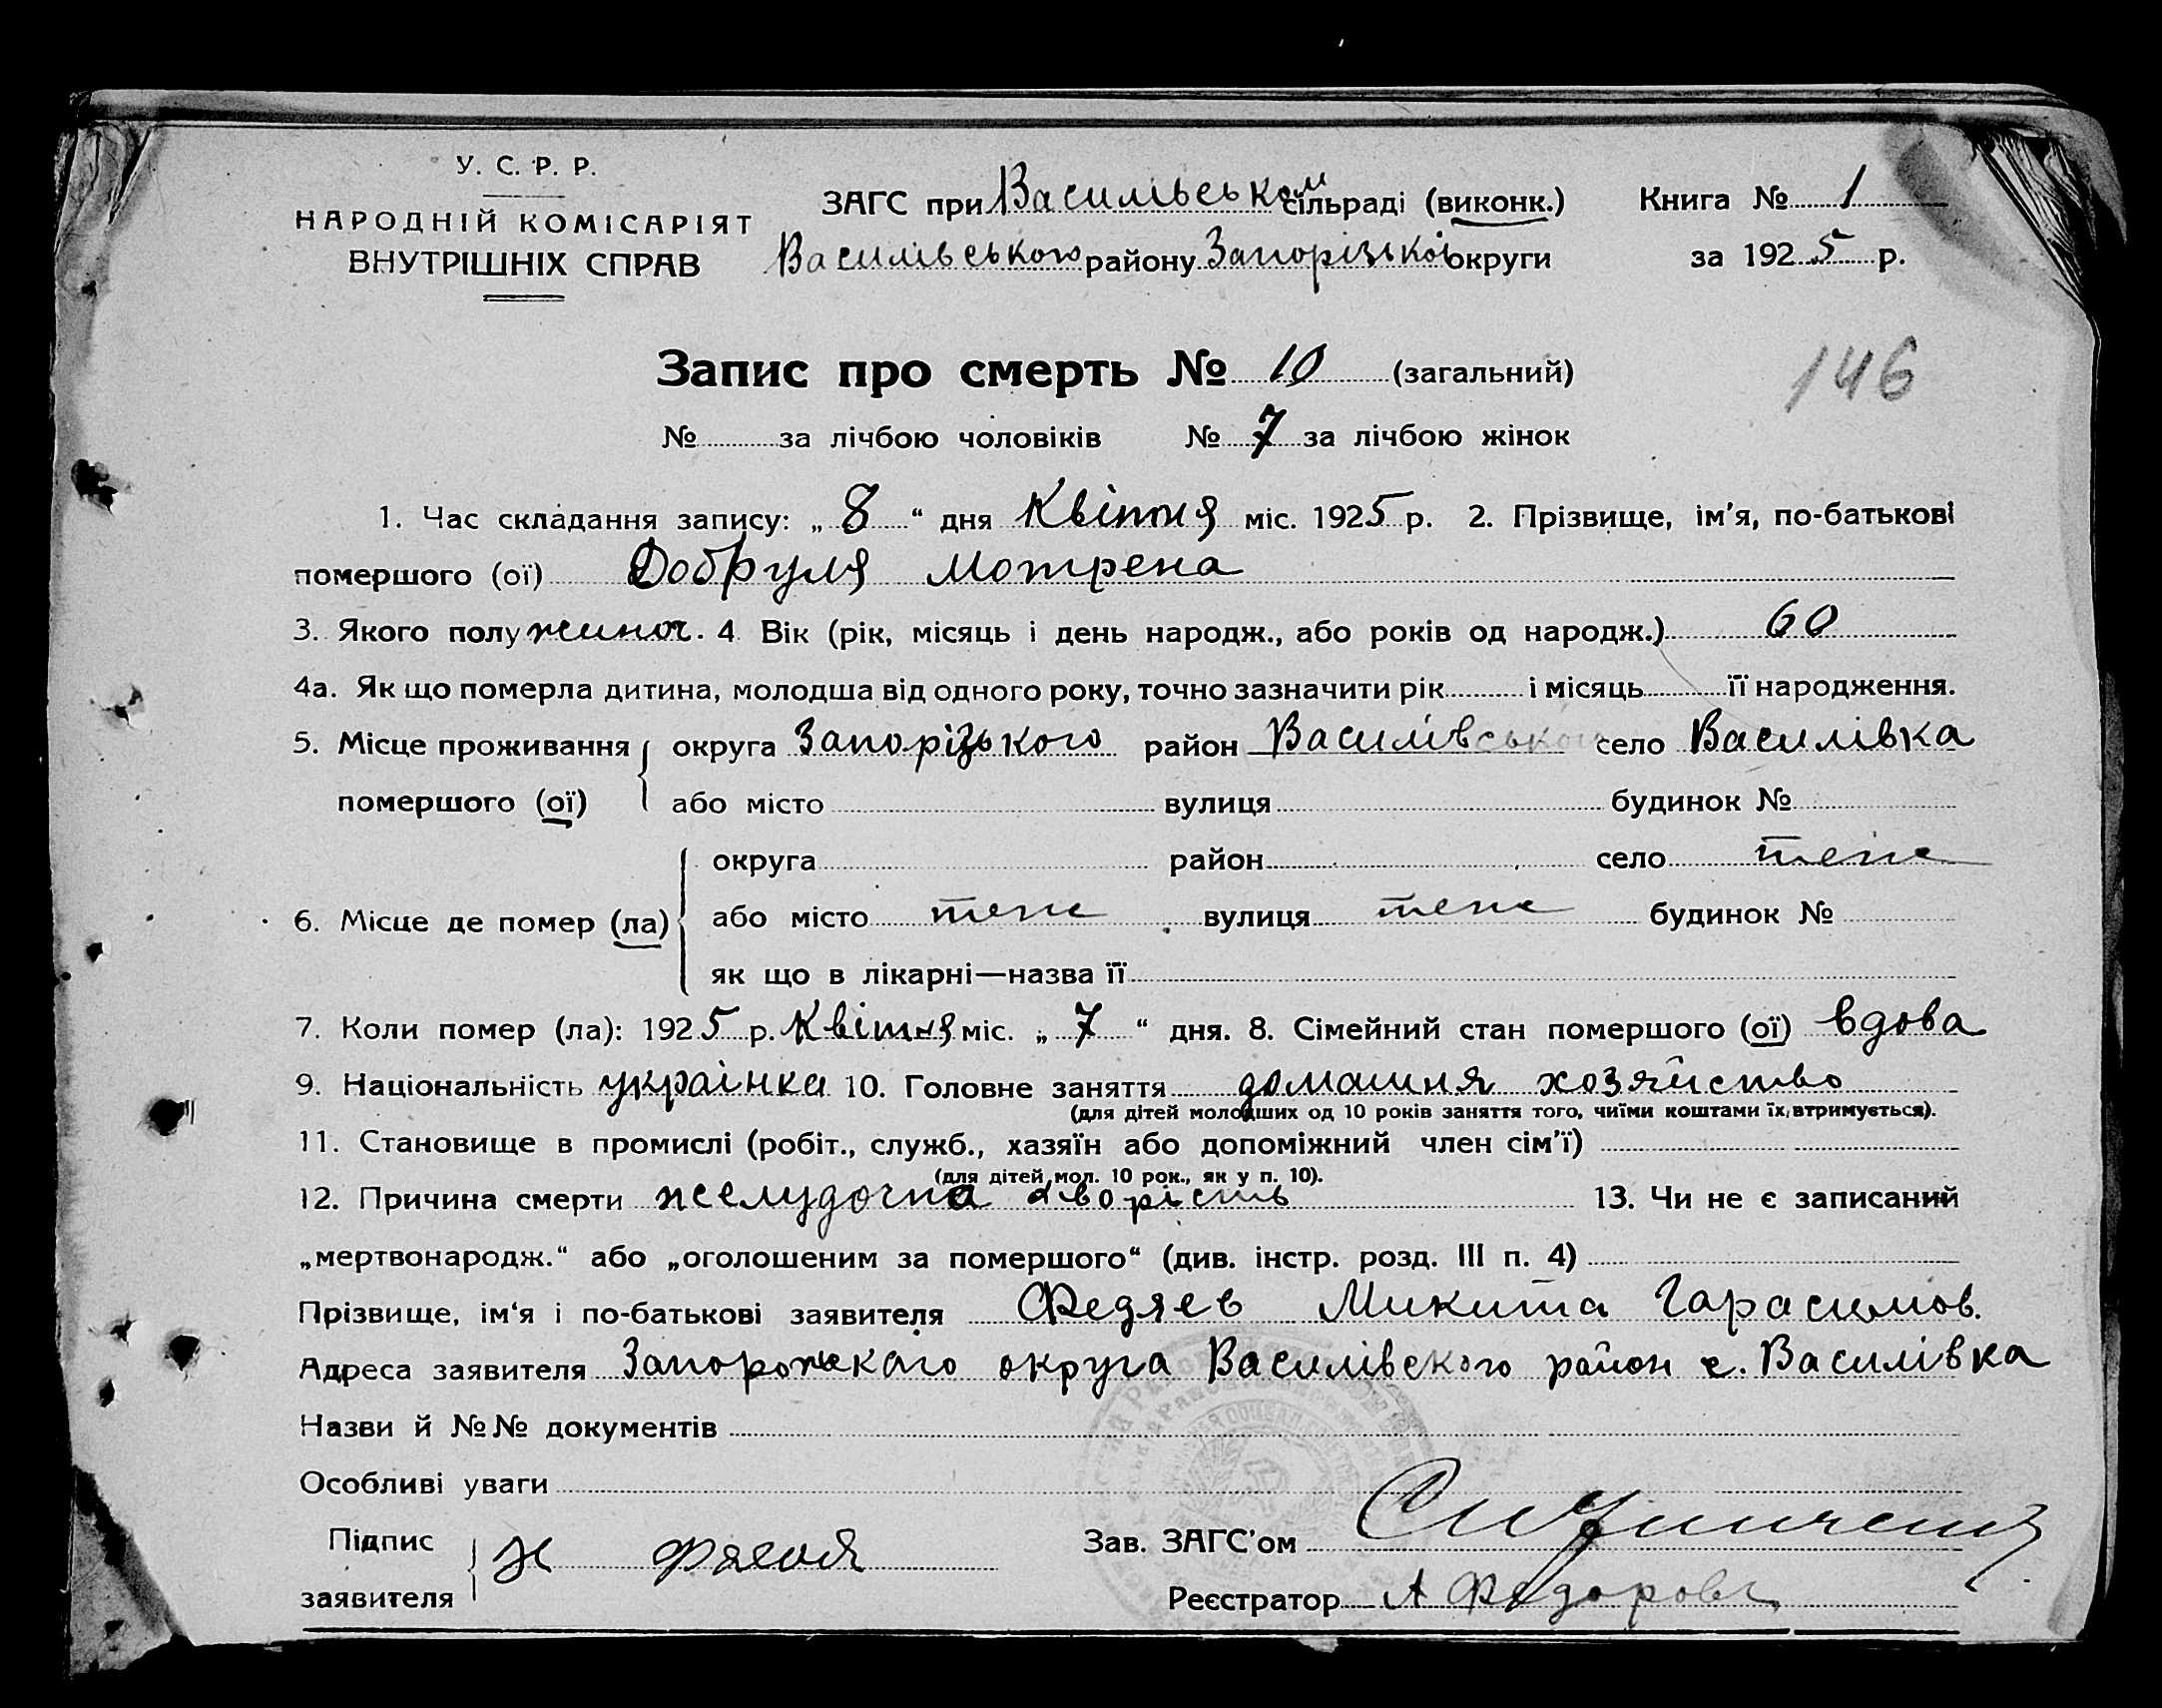 У. С. Р. Р.
НАРОДНІЙ КОМІСАРІЯТ
ВНУТРІШНІХ СПРАВ
ЗАГС при Василівськом сільраді (виконк.)
Василівського району Запорізької округи
Книга № 1
за 1925 р.
Запис про смерть № 10 (загальний)
146
№ за лічбою чоловіків № 7 за лічбою жінок
1. Час складання запису: „8“ дня Квітня міс. 1925 р. 2. Прізвище, ім’я, по-батькові
помершого (ої) Добруля Мотрена
3. Якого полу жиноч. 4 Вік (рік, місяць і день народж., або років од народж.) 60
4а. Як що померла дитина, молодша від одного року, точно зазначити рік і місяць її народження.
5. Місце проживання округа Запорізького район Василівського село Василівка
помершого (ої) або місто вулиця будинок №
округа район село теж
6. Місце де помер (ла) або місто теж вулиця теж будинок №
як що в лікарні—назва її
7. Коли помер (ла): 1925 р. Квітня міс. „7“ дня. 8. Сімейний стан помершого (ої) вдова
9. Національність украінка 10. Головне заняття домашня хозяйство
(для дітей молодших од 10 років заняття того, чиїми коштами їх втримується).
11. Становище в промислі (робіт., служб., хазяїн або допоміжний член сім’ї)
(для дітей мол. 10 рок., як у п. 10).
12. Причина смерти желудочна хворість 13. Чи не є записаний
„мертвонародж.“ або „оголошеним за помершого“ (див. інстр. розд. III п. 4)
Прізвище, ім‘я і по-батькові заявителя Федяев Микита Гарасимов.
Адреса заявителя округа Василівского район с. Василівка
Назви й №№ документів
Особливі уваги
Підпис
заявителя
Зав. ЗАГС’ом
Реєстратор А Федорова